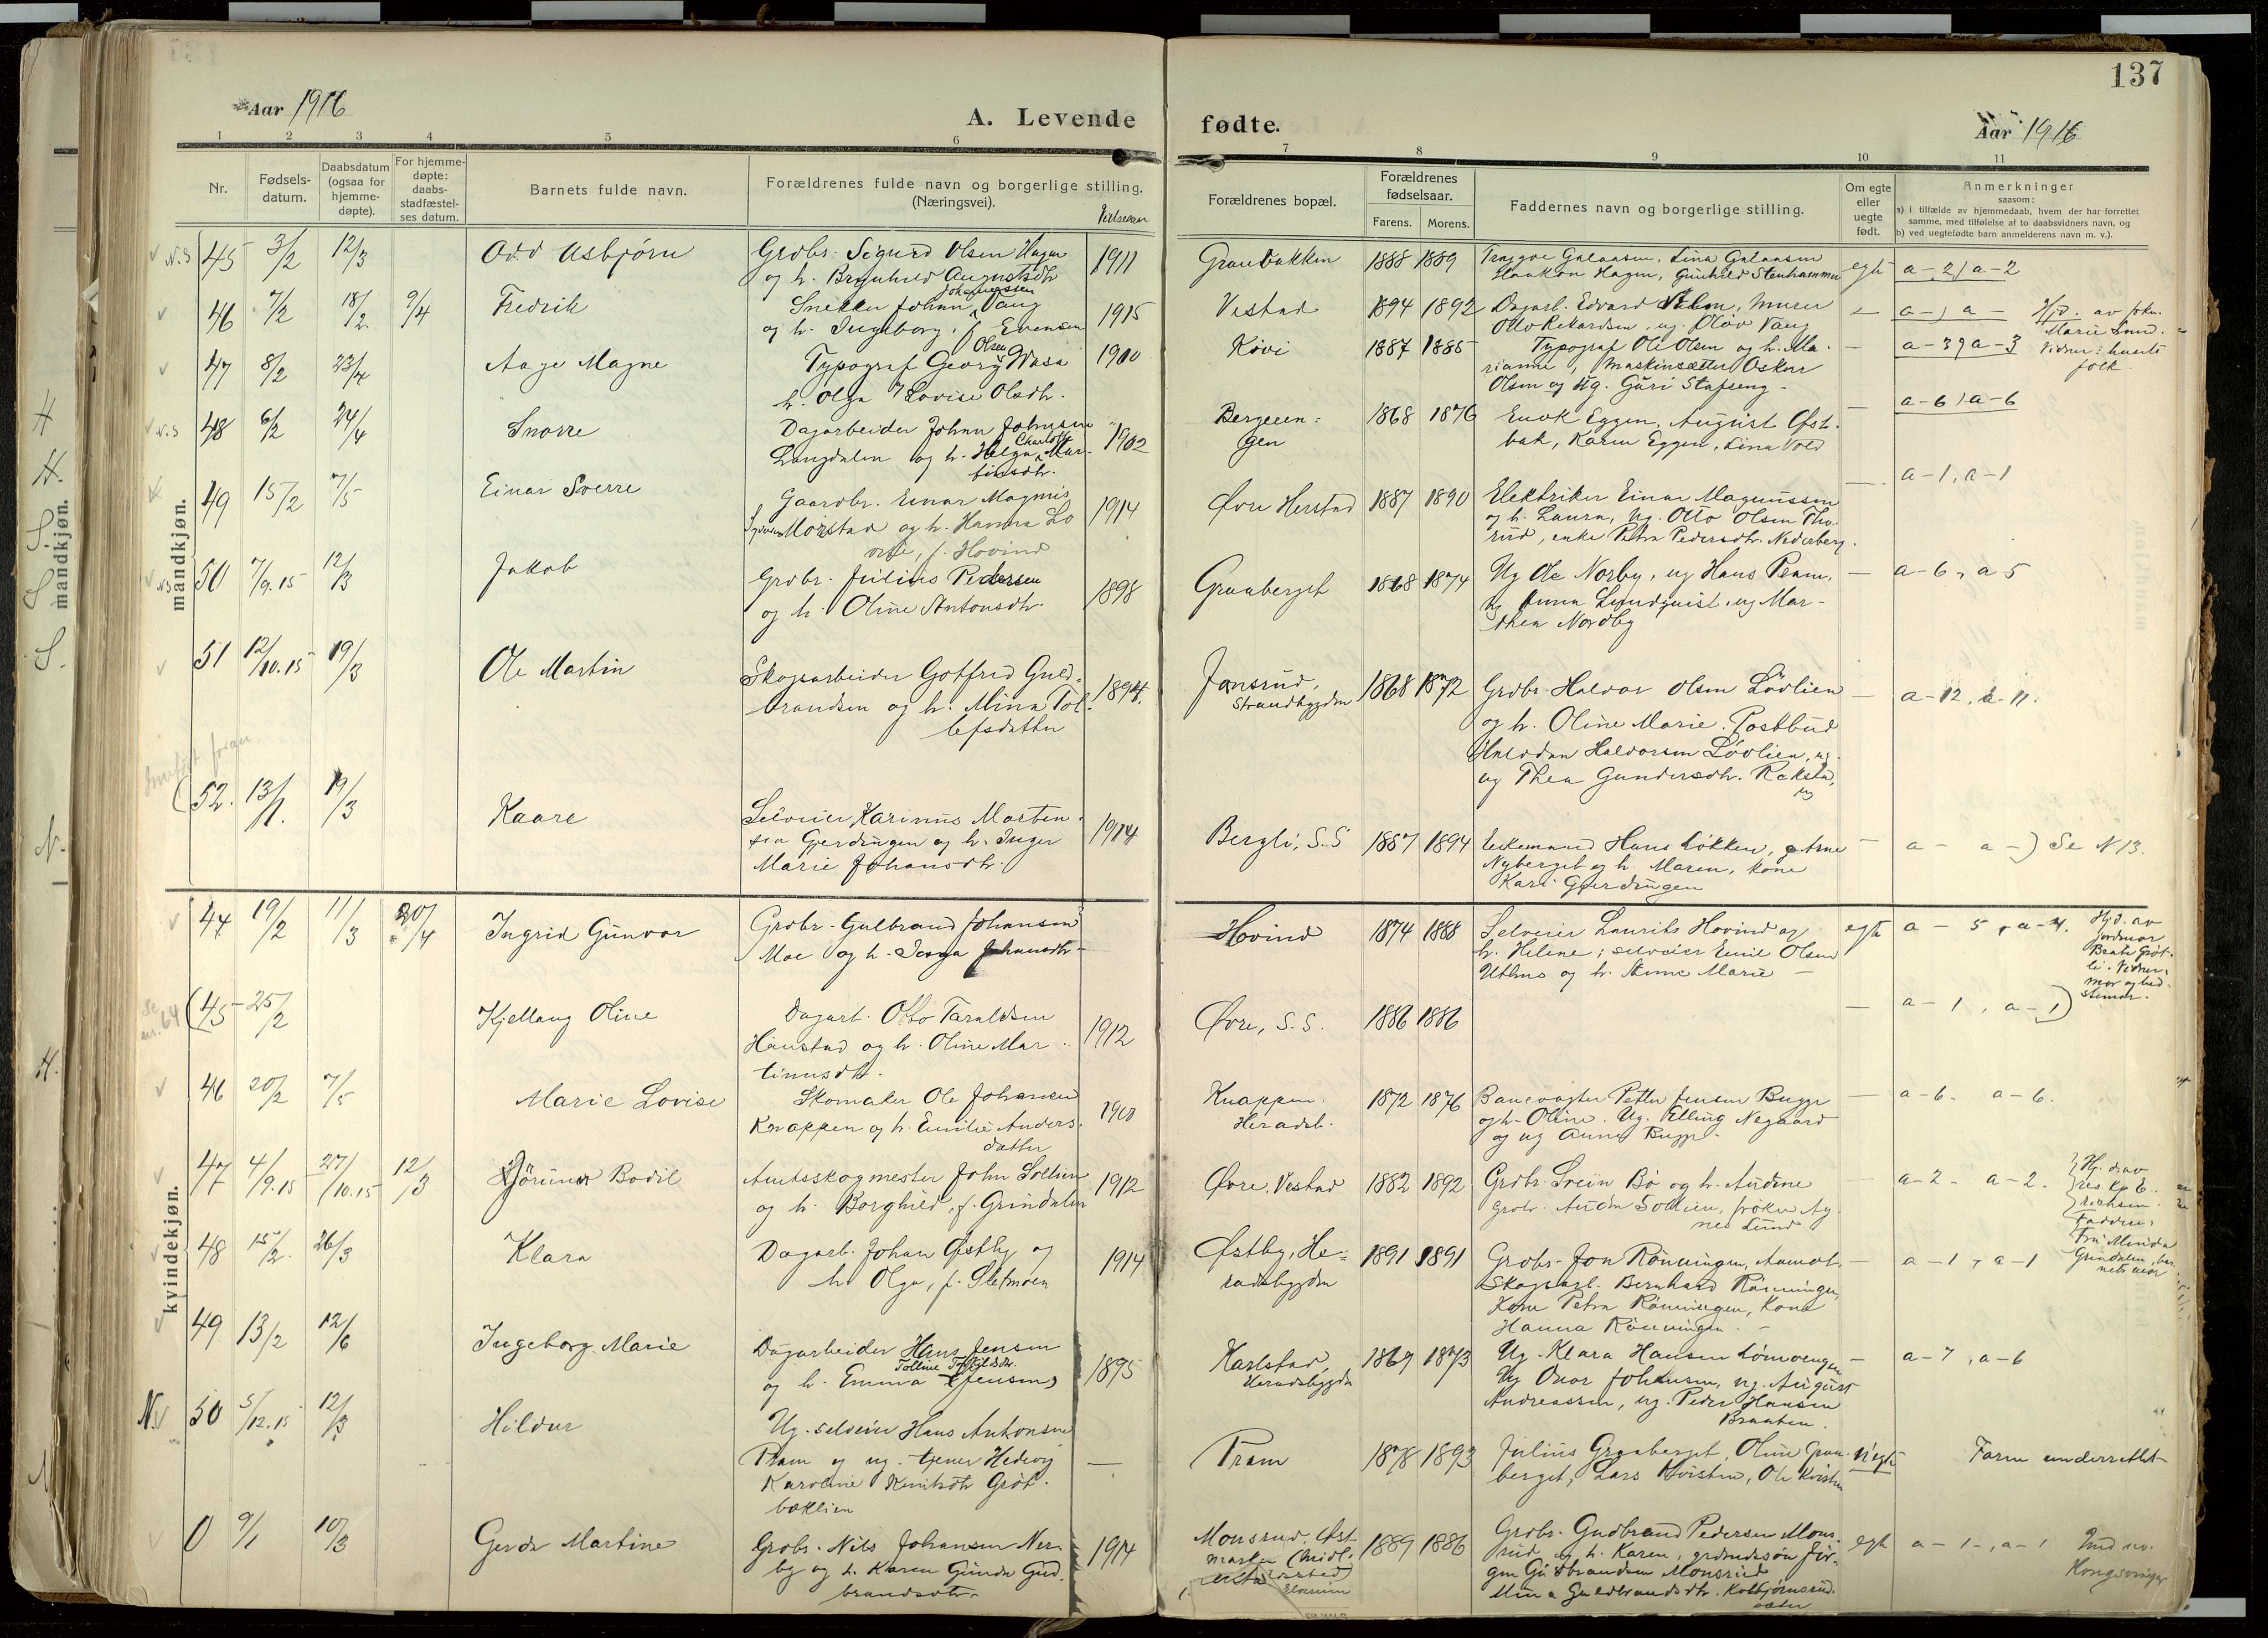 137
Aar 1916
A. Levende
fødte.
Aar 1916
1 2 3 4 5 6 7 8 9 10 11
Nr.
Fødsels-
datum.
Daabsdatum
(ogsaa for
hjemme-
døpte).
For hjemme-
døpte:
daabs-
stadfæstel-
ses datum.
Barnets fulde navn.
Forældrenes fulde navn og borgerlige stilling.
(Næringsvei).
Forældrenes bopæl.
Forældrenes
fødselsaar.
Farens. Morens.
Faddernes navn og borgerlige stilling.
Om egte
eller
uegte
født.
Anmerkninger
saasom:
a) i tilfælde av hjemmedaab, hvem der har forrettet
samme, med tilføielse af to daabsvidners navn, og
b) ved uegtefødte barn anmelderens navn m. v.).
mandkjøn.
mandkjøn.
45 3/2 12/3 Odd Asbjørn
Grdbr. Sigurd Olsen Hagen
og h. Brynhild Augustsdtr
1911
Graabakken 1888 1889
Haakon Hagen, Gunhild Stenhammer
egte a-2, a-2
46 7/2 18/2 9/4 Fredrik
Snekker Johan Johannessen Vang
og h. Ingeborg, f. Evensen
1915
Vestad 1894 1892
Dagarb. Edvard Holm, murer
Otto Rikardsen, ug. Oløv Vang
a-, a-
Hjd. av frkn.
Marie Lund.
Vidner: husets
folk.
47 8/2 23/4 Aage Magne
Typograf Georg Olsen Wasa
h. Olga Lovise Olsdtr.
1910
Kovi 1887 1885
Typograf Ole Olsen og h. Ma-
rianne, Maskinsætter Oskar
Olsen og ug. Guri Stafseng
a-3, a-3
48 6/2 24/4 Snorre
Dagarbeider Johan Johnsen
Langdalen og h. Helga Charlotte Mar-
tinsdtr.
1902
Bergeren-
gen 1868 1876
Enok Eggen, August Øst-
bak, Karen Eggen, Lina Vold
a-6, a-6
49 15/2 7/5 Einar Sverre
Gaardbr. Einar Magnus
Morstad og h. Hanna Lo
vise, f. Hovind
1914
Øvre Herstad 1887 1890
Elektriker Einar Magnussen
og h. Laura, ug. Otto Olsen Tho-
rud, enke Petra Pedersdtr. Nederberg.
a-1, a-1
50 7/9.15 12/3 Jakob
Grdbr. Julius Pedersen
og h. Oline Antonsdtr.
1898
Graaberget 1868 1874
Ug Ole Norby, ug Hans Pram,
ug Anna Lundquist, ug Mar-
thea Nordby
a-6, a 5
51 12/10.15 19/3 Ole Martin
Skogsarbeider Gotfred Guld-
brandsen og h. Mina Tol-
lefsdatter
1894.
Jonsrud,
Strandbygden 1868 1872
Grdbr. Halvor Olsen Lövlien
og h. Oline Marie. Postbud
Halvdan Halvorsen Lövlien, ug.
ug Thea Gundersdtr. Raksta,
ug
a-12, a-11.
52. 13/1. 19/3 Kaare
Selveier Karinus Morten-
sen Gjerdrungen og h. Inger
Marie Johansdtr.
1914
Bergli, S.S 1887 1894
Enkemand Hans Løkken, g. Arne
Nyberget og h. Maren, kone
Kari Gjerdrungen
a- a-) Se N 13.
kvindekjøn.
44 19/2 11/3 20/4 Ingrid Gunvor
Grdbr. Gulbrand Johansen
Moe og h. Johansdtr
Hovind 1874 1888
Selveier Laurits Hovind og
h. Helene; selveier Emil Olsen
Uthus og h. Stine Marie
egte a-5, a-4.
Hjd. av
jordmor
Beate Grøt-
li. Vidner:
mor og bed-
stemor.
Se
nr. 64
(45 25/2 Kjellaug Oline
Dagarb. Otto Taraldsen
Haustad og h. Oline Mar-
tinusdtr.
1912
Øvre, S.S. 1886 1886
a-1, a-1)
46 20/2 7/5 Marie Lovise
Skomaker Ole Johansen
Knappen og h. Emilie Anders-
datter
1900
Knappen.
Heradsb. 1872 1876
Banevogter Petter Jensen Bugge
og h. Oline. Ug. Elling Negaard
og ug Anna Bugge.
a-6. a-6.
47 4/9.15 27/10.15 12/3 Jörunn Bodil
Amtsskogmester John Sollien
og h. Borghild, f. Grindalen
1912
Øvre, Vestad 1882 1892
Grdbr. Svein Bø og h. Audine
grdbr. Audun Sollien, frøken Ag-
nes Lund
a-2. a-2.
Hj. d. av
res. Kp. E.
Faddere:
Fru Minda
Grindalen, bar-
nets mor
48 15/2. 26/3 Klara
Dagarb. Johan Østby og
h. Olga, f. Sletmoen
1914
Østby, He-
radsbygden 1891 1891
Grdbr. Jon Rönningen, Aamot.
Skogsarb. Bernhard Rönningen,
Kone Petra Rönningen, Kone
Hanna Rönningen.
a-1, a-1
49 13/2 12/6 Ingeborg Marie
Dagarbeider Hans Jensen
og h. Emma Tolline (Jensen)
1895
Karlstad,
Heradsbygden 1869 1873
Ug. Klara Hansen Lömoengen
Ug Oscar Johansen, ug. August
Andreassen, ug. Peder Hansen
Braaten.
a-7, a-6
50 5/12.15 12/3 Hildur
Ug. selveier Hans Antonsen
Pram og ug. tjener Hedvig
Karoline Knutsdtr Grøt-
bæklien
Pram 1878 1893
Julius Graaberget, Oline Graa-
berget, Lars Kvisten, Ole Kvisten
uegte Faren underrettet
0 9/1 10/3 Gerda Martine
Grdbr. Nils Johansen Ner-
by og h. Karen Gunda Gud-
brandsdtr.
1914
Monsrud, Øst-
marken (midl. 1889 1886
Grdbr. Gudbrand Pedersen Mons-
rud og h. Karen, grdmdssøn Jör-
gen Gudbrandsen Monsrud
Mina Guldbrandsdtr. Kolbjørnsrud.
egte a-1-, a-1
Kongsvinger